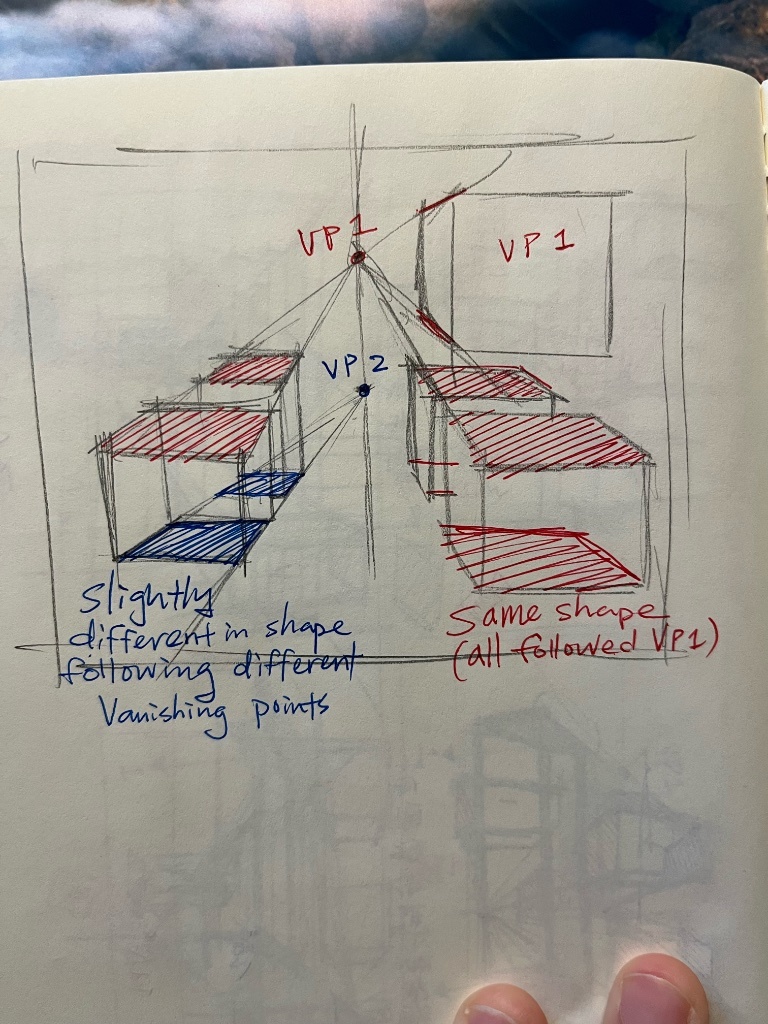 VP1
VP1
VP2
Slightly
different in shape
following different
Vanishing points
Same shape
(all followed VP1)